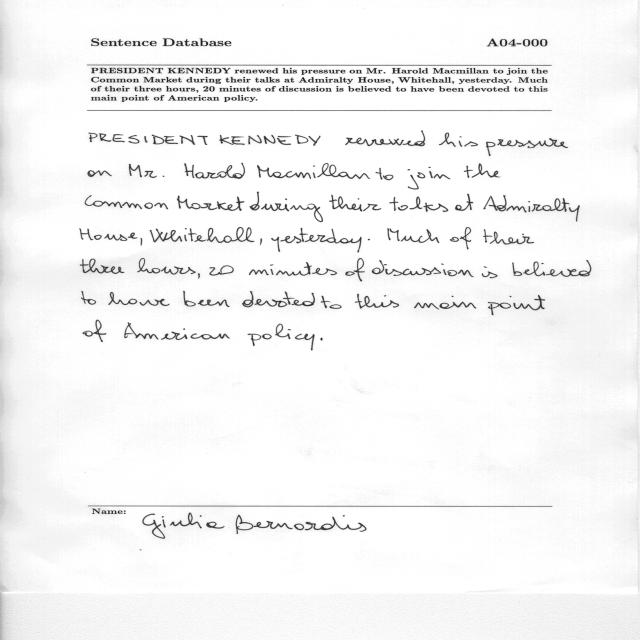 Sentence Database A04-000
PRESIDENT KENNEDY renewed his pressure on Mr. Harold Macmillan to join the
Common Market during their talks at Admiralty House, Whitehall, yesterday. Much
of their three hours, 20 minutes of discussion is believed to have been devoted to this
main point of American policy.
PRESIDENT KENNEDY renewed his pressure
on Mr. Harold Macmillan to join the
Common Market during their talks at Admiralty
House, Whitehall, yesterday. Much of their
three hours, 20 minutes of discussion is believed
to have been devoted to this main point
of American policy.
Name: Giulia Bernardis